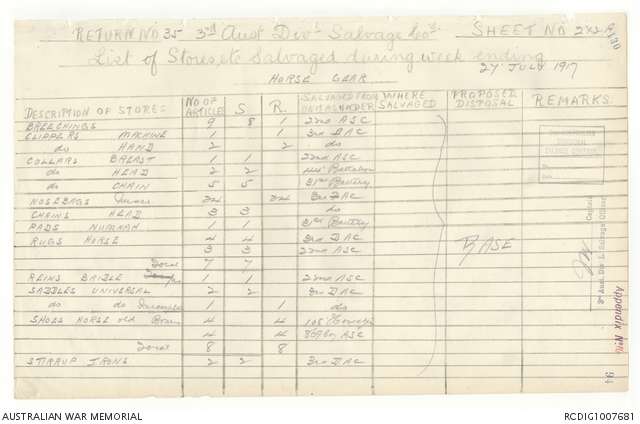 RETURN NO 35 3rd Aust Divl Salvage Coy SHEET NO 2x2A
List of Stores etc Salvaged during week ending
27 JULY 1917
HORSE GEAR
DESCRIPTION OF STORES NO OF ARTICLES S. R. SALVAGED FROM OR UNDER WHERE SALVAGED PROPOSED DISPOSAL REMARKS.
BREECHINGS 9 8 1 22nd ASC
CLIPPERS MACHINE 1 1 3rd DAC
do HAND 2 2 do
COLLARS BREAST 1 1 22nd ASC
do HEAD 2 2 Battalion
do CHAIN 5 5 31st Battery
NOSEBAGS 24 24 3rd DAC
CHAINS HEAD 3 3 do
PADS NUMNAH 1 1 31st Battery
RUGS HORSE 4 4 3rd DAC
3 3 22nd ASC
Total 7 7
REINS BRIDLE 1 1 22nd ASC
SADDLES UNIVERSAL 2 2 3rd DAC
do do Incomplete 1 1 do
SHOES HORSE old 4 4 108 Howitzer
4 4 ASC
Total 8 8
STIRRUP IRONS 2 2 3rd DAC
BASE
Captain
3rd Aust. Div'l. Salvage Officer
Appendix No
94
AUSTRALIAN WAR MEMORIAL RCDIG1007681